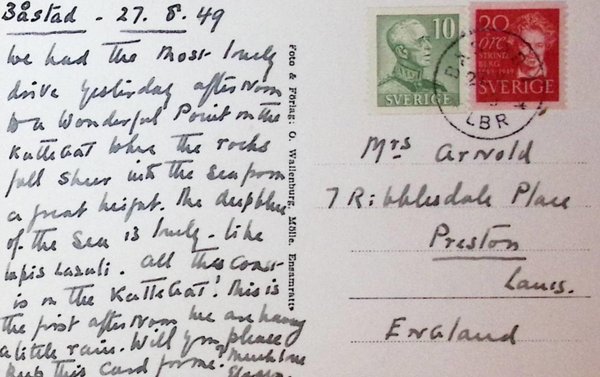 Båstad - 27. 8. 49
We had the most lovely
drive yesterday afternoon
to a Wonderful Point on the
Kattegat where the rocks
fall sheer into the sea from
a great height. The deep blue
of the sea is lovely. like
lapis lazuli. All this coast
is on the Kattegat! This is
the first afternoon we are having
a little rain. Will you please
keep this card for me. Much love
Foto & Förlag: O. Wallenburg, Mölle. Ensamrätt.
10
SVERIGE
20
öre
STRIND
BERG
1849-1949
SVERIGE
LBR
Mrs Arnold
7 Ribblesdale Place
Preston
Lancs.
England